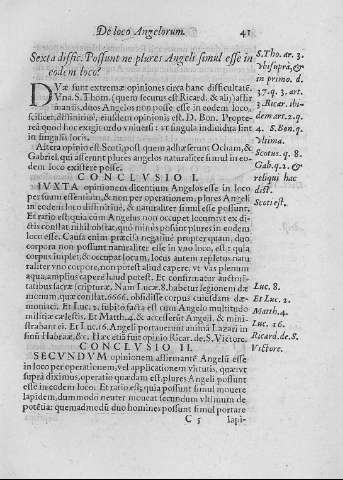 De loco Angelorum. 41
Sexta diffic. Possunt ne plures Angeli simul esse in
eodem loco?
DVæ sunt extremæ opiniones circa hanc difficultatē.
Vna S. Thom. (quem secutus est Ricard. & alij) affir
mantis, duos Angelos non posse esse in eodem loco,
scilicet diffinitiuè, eiusdem opinionis est D. Bon. Propte-
rea quòd hoc exigit ordo vniuersi: vt singula indiuidua sint
in singulis locis.
Altera opinio est Scoti, post quem adhæserunt Ocham, &
Gabriel, qui asserunt plures angelos naturaliter simul in eo-
dem loco existere posse.
CONCLVSIO I.
IVXTA opinionem dicentium Angelos esse in loco
per suam essentiam, & non per operationem, plures Angeli
in eodem loco diffinitiuè, & naturaliter simul esse possunt.
Et ratio est: quia cùm Angelus non occupet locum: vt ex di-
ctis constat, nihil obstat, quò minus possint plures in eodem
loco esse. Causa enim præcisa negatiuè propter quam, duo
corpora non possunt naturaliter esse in vno loco, est: quia
corpus implet, & occupat locum, locus autem repletus natu
raliter vno corpore, non potest aliud capere, vt Vas plenum
aqua, amplius capere haud potest. Et confirmatur auctori-
tatibus sacræ scripturæ. Nam Lucæ. 8. habetur legionem dæ
monum, quæ constat. 6666. obsidisse corpus cuiusdam dæ-
moniaci. Et Luc. 2. subito facta est cum Angelo multitudo
militiæ cælestis. Et Matth. 4. & accesserūt Angeli, & mini-
strabant ei. Et Luc. 16. Angeli portauerunt animā Lazari in
sinū Habraæ, &c. Hæc etiā fuit opinio Ricar. de S. Victore.
CONCLVSIO II.
SECVNDVM opinionem affirmantē Angelū esse
in loco per operationem, vel applicationem virtutis, quæ: vt
supra diximus, operatio quædam est, plures Angeli possunt
esse in eodem loco. Et ratio est; quia possunt simul mouere
lapidem, dummodo neuter moueat secundum vltimum de
potētia: quemadmodū duo homines possunt simul portare
C 5 lapi-
S. Tho. ar. 3.
Vbi supra, &
in primo. d.
37. q. 3. art.
3. Ricar. ibi-
dem art. 2. q.
4. S. Bon. q.
Vltima.
Scotus. q. 8.
Gab. q. 2. &
reliqui hac
dist.
Scoti est.
Luc. 8.
Et Luc. 2.
Matth. 4.
Luc. 16.
Ricard. de S.
Victore.